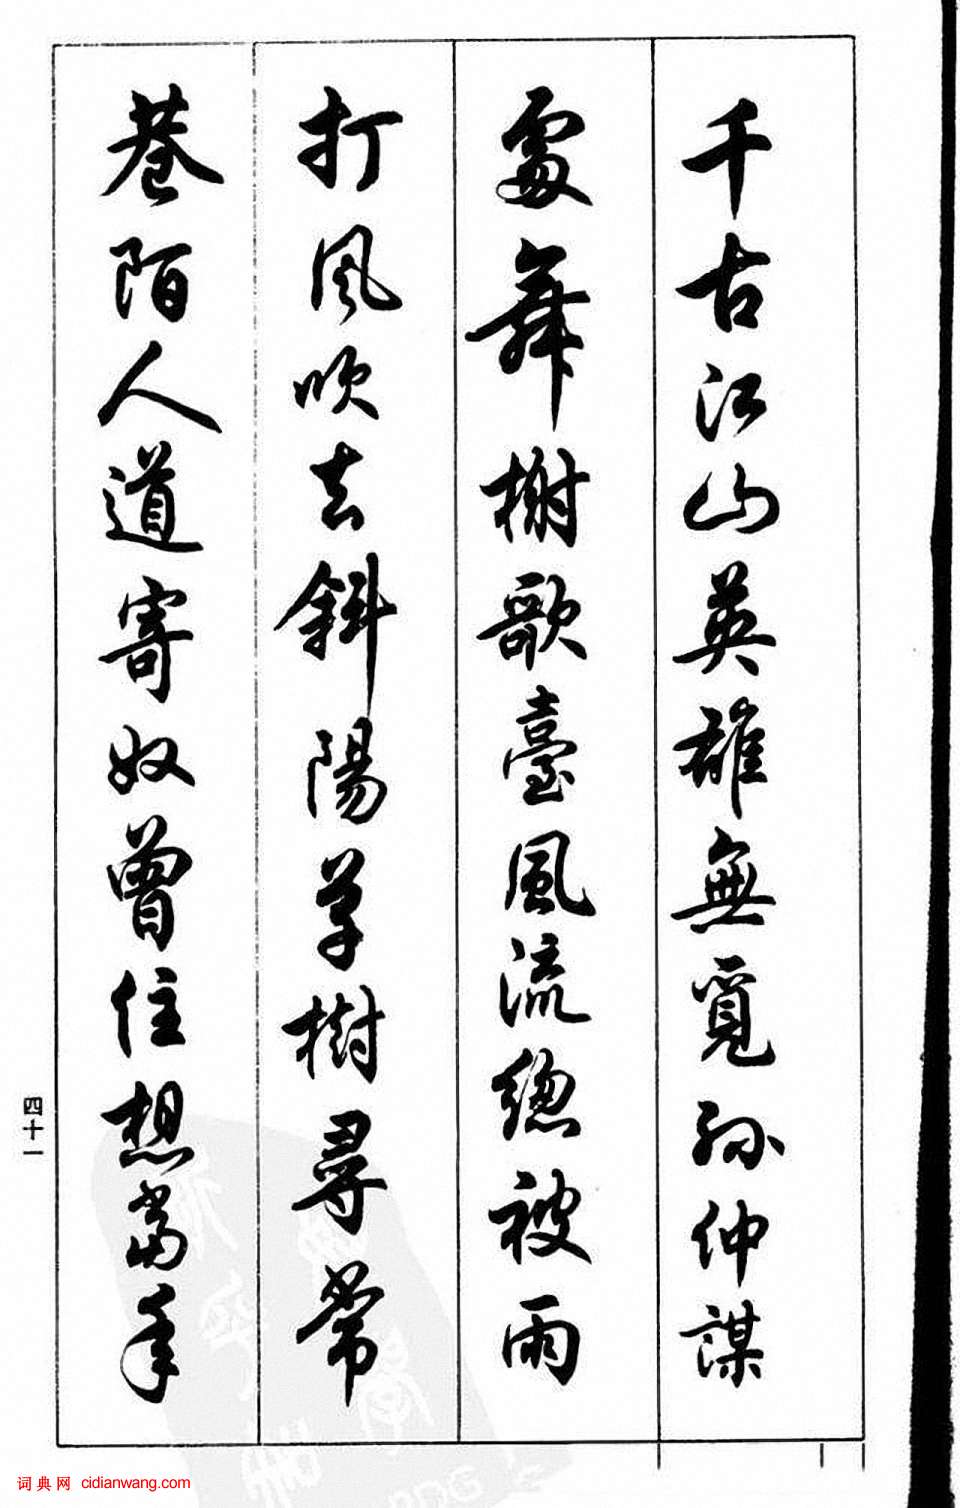 千古江山英雄無覓孫仲謀
處舞榭歌臺風流總被雨
打風吹去斜陽草樹尋常
巷陌人道寄奴曾住想當年
四十一
词典网 cidianwang.com